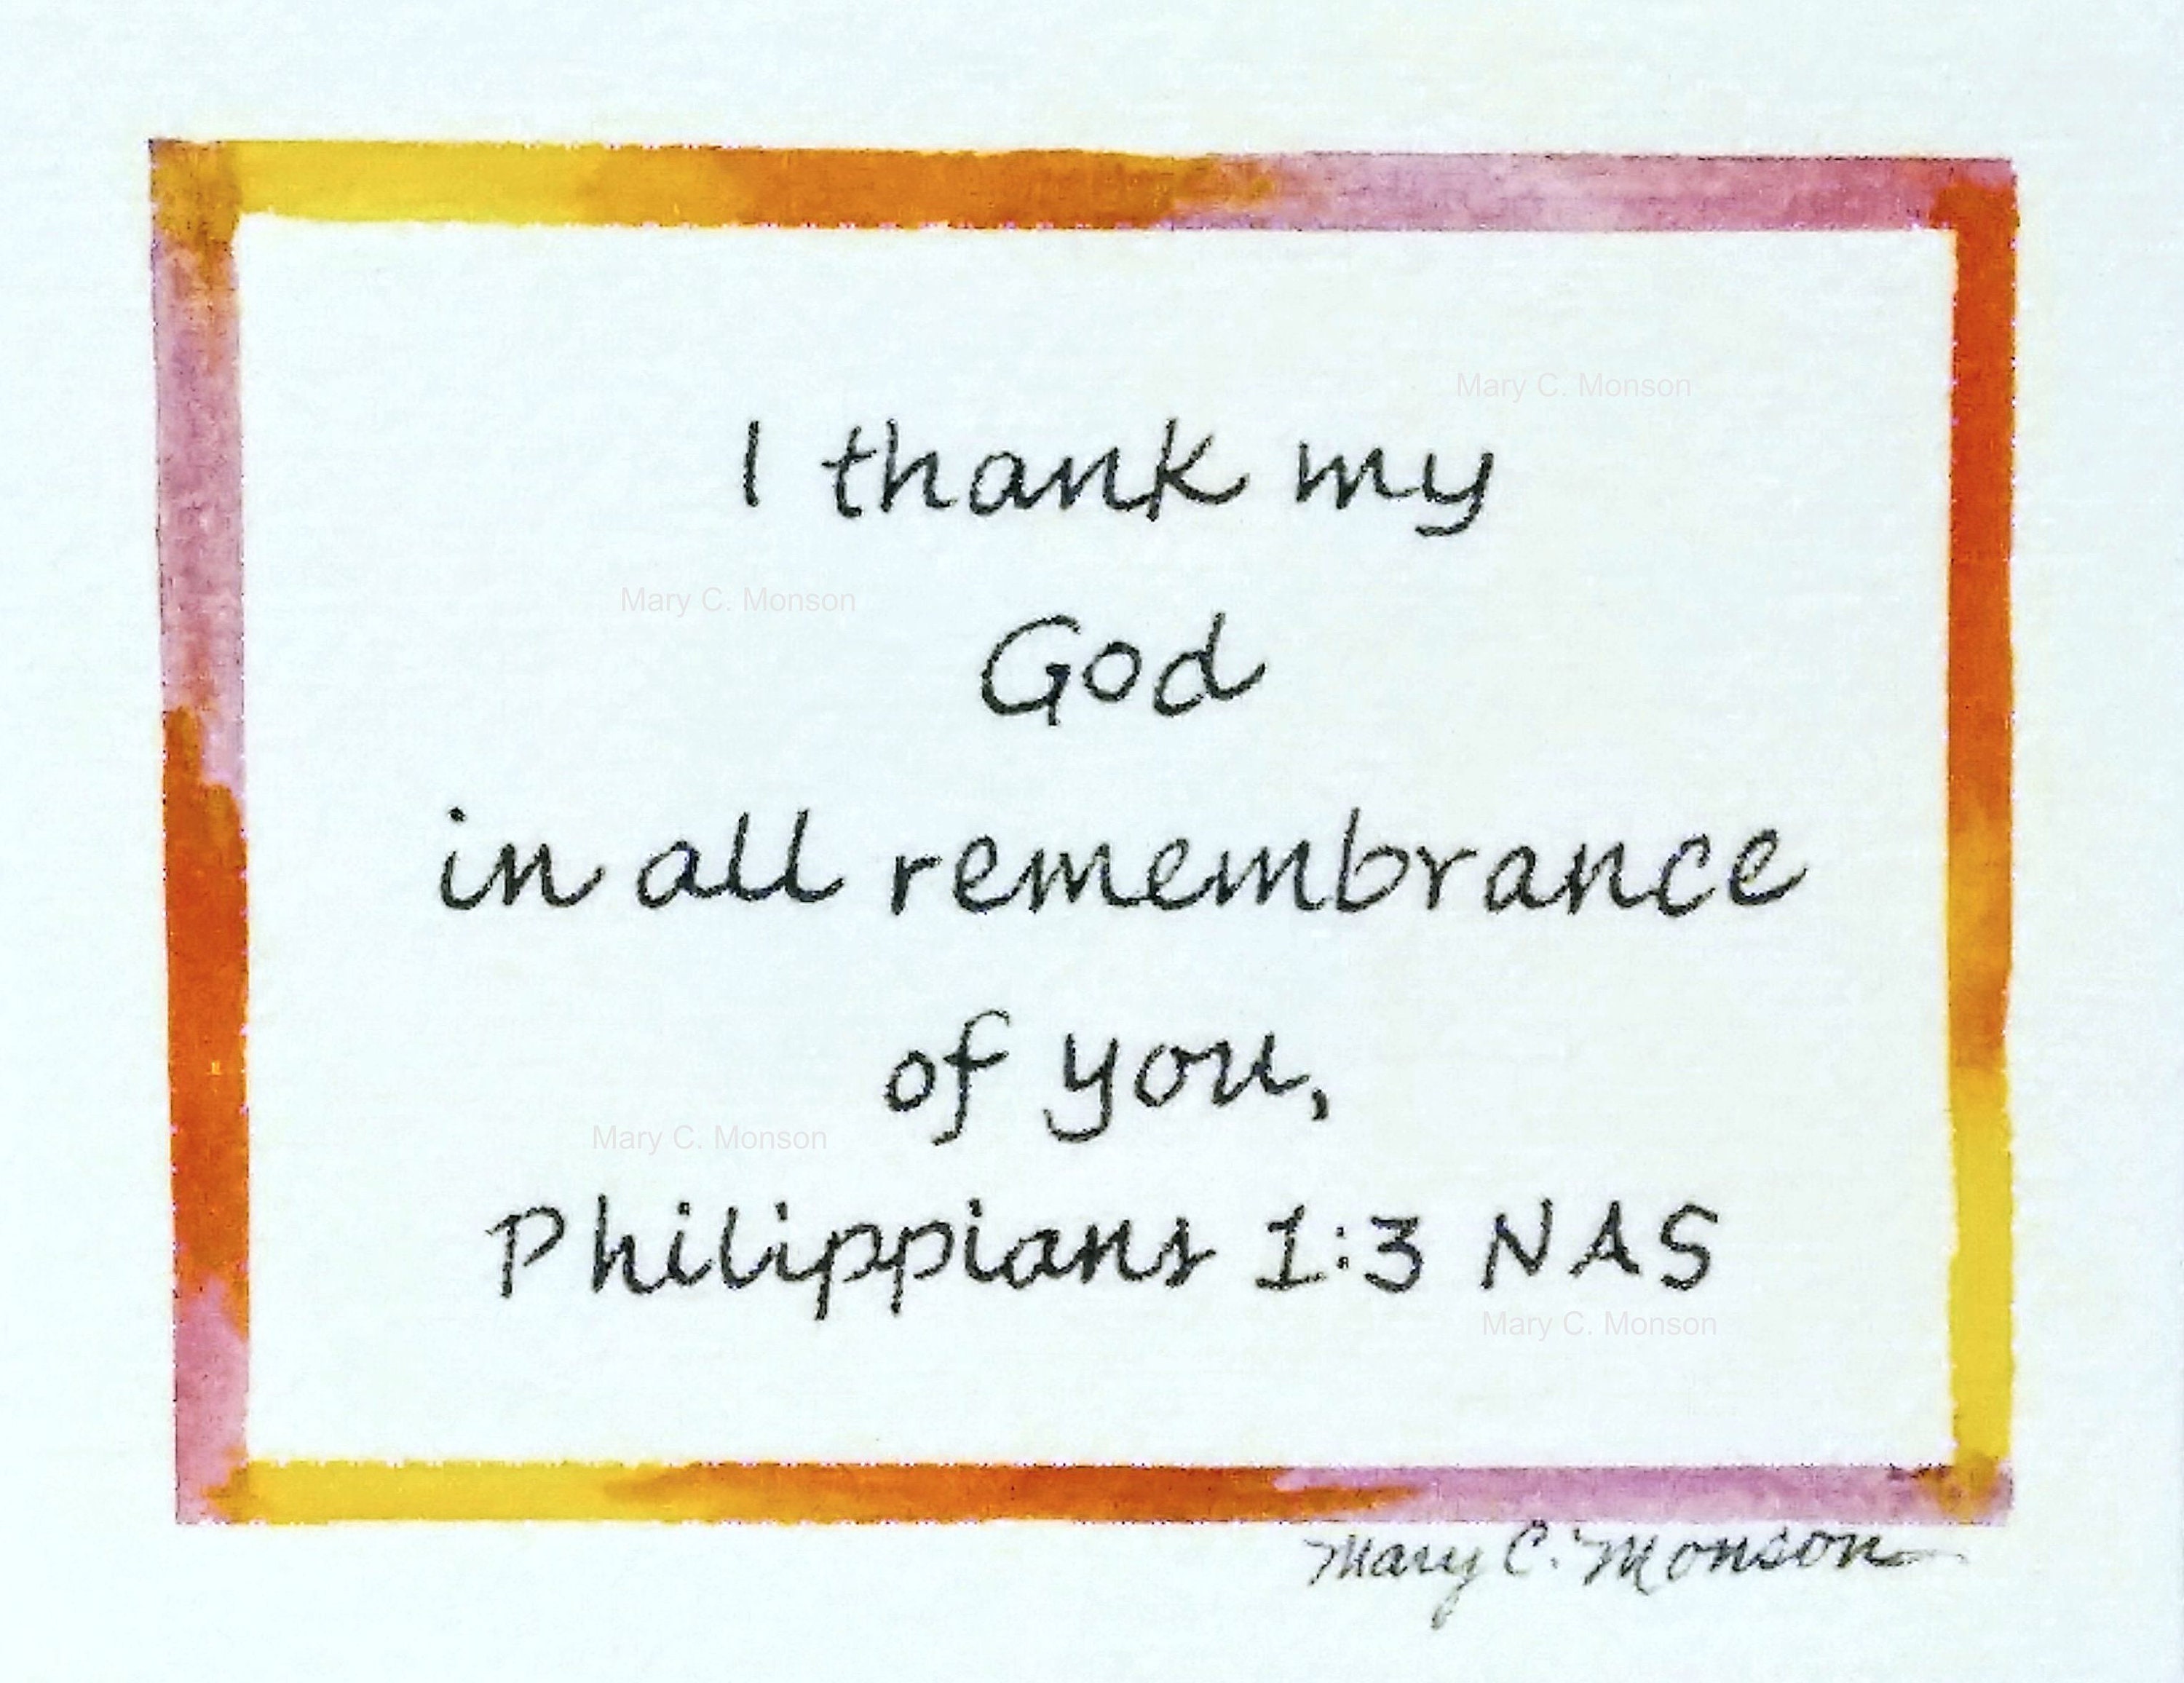 Mary C. Monson
I thank my
Mary C. Monson
God
in all remembrance
of you,
Mary C. Monson
Philippians 1:3 NAS
Mary C. Monson
Mary C. Monson